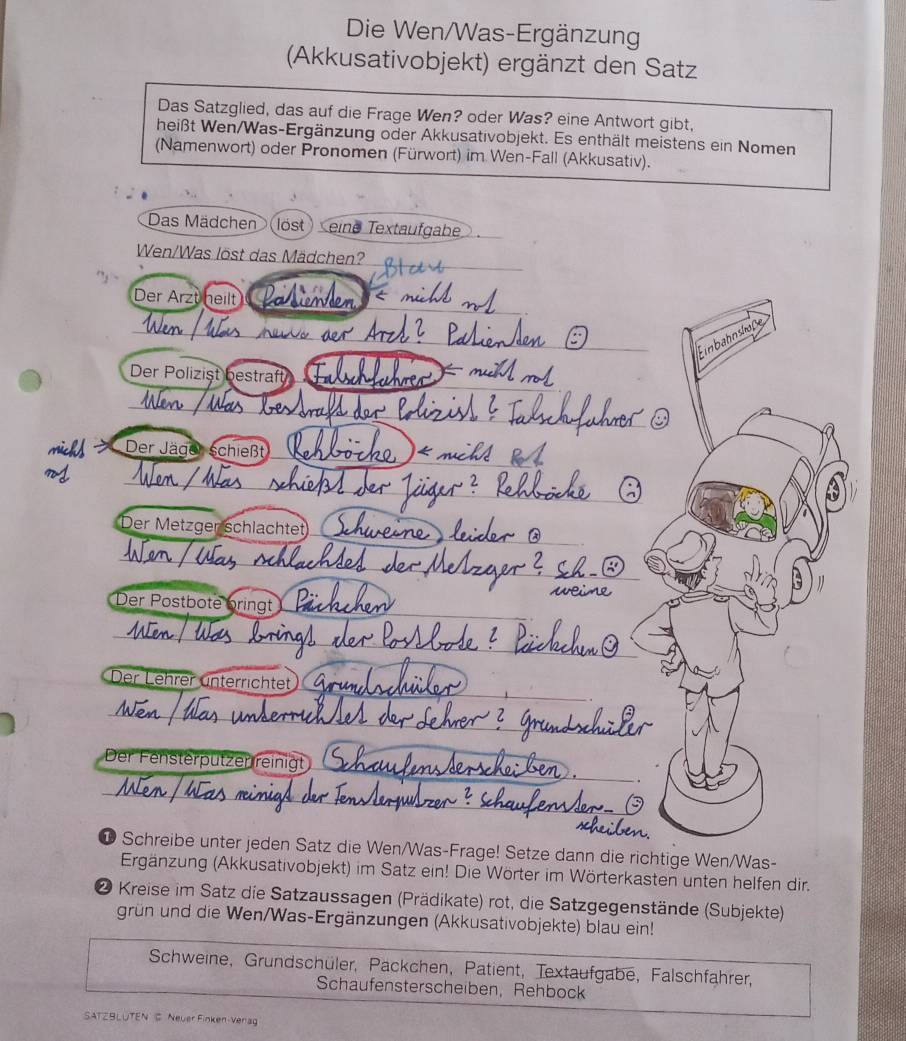 Die Wen/Was-Ergänzung
(Akkusativobjekt) ergänzt den Satz
Das Satzglied, das auf die Frage Wen? oder Was? eine Antwort gibt,
heißt Wen/Was-Ergänzung oder Akkusativobjekt. Es enthält meistens ein Nomen
(Namenwort) oder Pronomen (Fürwort) im Wen-Fall (Akkusativ).
Das Mädchen löst eine Textaufgabe.
Wen/Was löst das Mädchen?
Blau
Der Arzt heilt Patienten ← nicht rot
Wen / Was heilt der Arzt? Patienten
Einbahnstraße
Der Polizist bestraft Falschfahrer ← nicht rot
Wen / Was bestraft der Polizist? Falschfahrer
nicht rot → Der Jäger schießt Rehböcke ← nicht Rot
Wen / Was schießt der Jäger? Rehböcke
Der Metzger schlachtet Schweine, leider
Wen / Was schlachtet der Metzger? Sch-
weine
Der Postbote bringt Päckchen
Wen / Was bringt der Postbote? Päckchen
Der Lehrer unterrichtet Grundschüler
Wen / Was unterrichtet der Lehrer? Grundschüler
Der Fensterputzer reinigt Schaufensterscheiben.
Wen / Was reinigt der Fensterputzer? Schaufenster-
scheiben.
1 Schreibe unter jeden Satz die Wen/Was-Frage! Setze dann die richtige Wen/Was-
Ergänzung (Akkusativobjekt) im Satz ein! Die Wörter im Wörterkasten unten helfen dir.
2 Kreise im Satz die Satzaussagen (Prädikate) rot, die Satzgegenstände (Subjekte)
grün und die Wen/Was-Ergänzungen (Akkusativobjekte) blau ein!
Schweine, Grundschüler, Päckchen, Patient, Textaufgabe, Falschfahrer,
Schaufensterscheiben, Rehbock
SATZBLÜTEN © Neuer Finken-Verlag